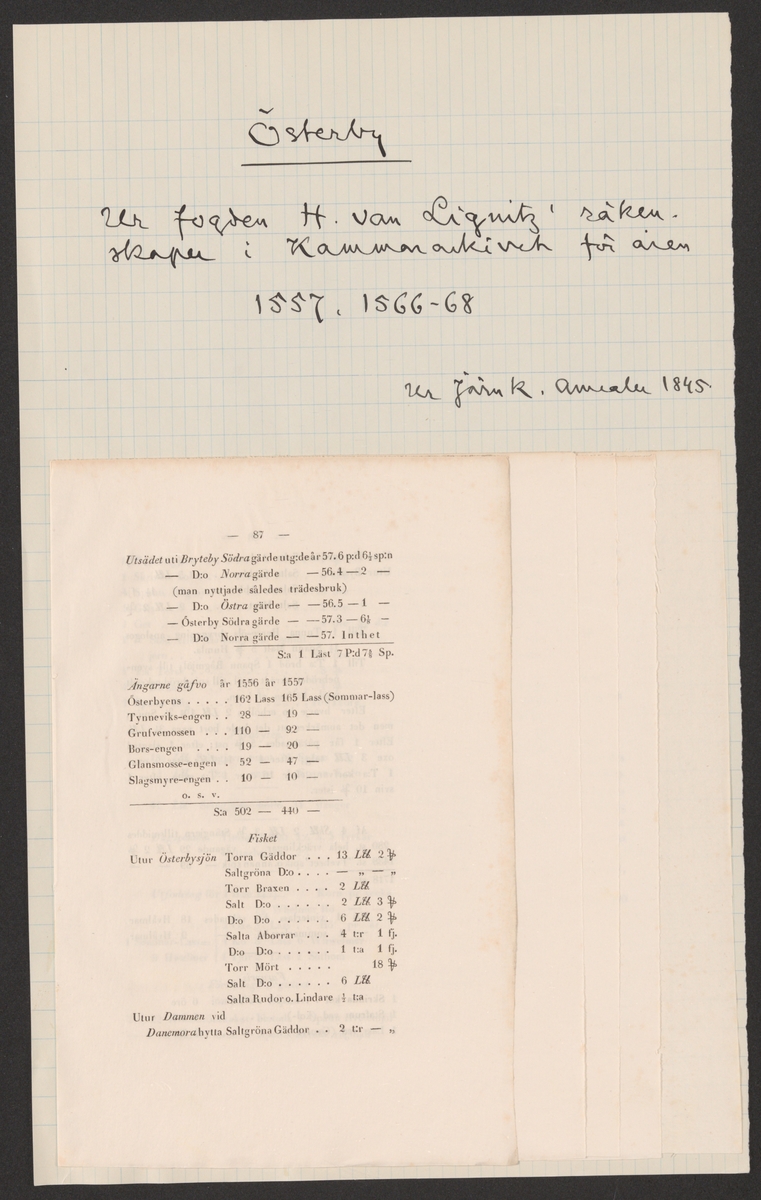 Österby
Ur fogden H. van Lignitz' räken-
skaper i Kammararkivet för åren
1557, 1566-68
Ur Järnk. Annaler 1845.
— 87 —
Utsädet uti Bryteby Södra gärde utg:de år 57. 6 p:d 6½ sp:n
— D:o Norra gärde — 56. 4 — 2 —
(man nyttjade således trädesbruk)
— D:o Östra gärde — — 56. 5 — 1 —
— Österby Södra gärde — — 57. 3 — 6½ —
— D:o Norra gärde — — 57. Inthet
S:a 1 Läst 7 P:d 7½ Sp.
Ängarne gåfvo år 1556 år 1557
Österbyens . . . . . 162 Lass 165 Lass (Sommar-lass)
Tynneviks-engen . . 28 — 19 —
Grufvemossen . . . 110 — 92 —
Bors-engen . . . . 19 — 20 —
Glansmosse-engen . 52 — 47 —
Slagsmyre-engen . . 10 — 10 —
o. s. v.
S:a 502 — 440 —
Fisket
Utur Österbysjön Torra Gäddor . . . 13 L℔. 2 ℔
Saltgröna D:o . . . . — „ — „
Torr Braxen . . . . 2 L℔.
Salt D:o . . . . . . 2 L℔. 3 ℔
D:o D:o . . . . . . 6 L℔. 2 ℔
Salta Aborrar . . . 4 t:r 1 fj.
D:o D:o . . . . . . 1 t:a 1 fj.
Torr Mört . . . . . 18 ℔
Salt D:o . . . . . . 6 L℔.
Salta Rudor o. Lindare ½ t:a
Utur Dammen vid
Danemora hytta Saltgröna Gäddor . . 2 t:r — „